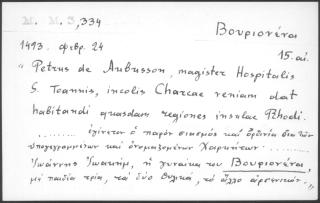 M. M. 3, 334
Βουριονέναι
1493. φεβρ. 24
15. αἰ.
"Petrus de Aubusson, magister Hospitalis
S. Ioannis, incolis Charcae veniam dat
habitandi quasdam regiones insulae Rhodi.
......... ἐγίνετον ὁ παρὸν
ὑπογεγραμμένων καὶ ὀνομαζομένων Χαρκητῶν
Ἰωάννης Ἰωακήμ, ἡ γυναίκα του Βουριονέναι,
μὲ παιδία τρία, τὰ δύο θηλικά, τὸ ἄλλο ἀρσενικόν.."